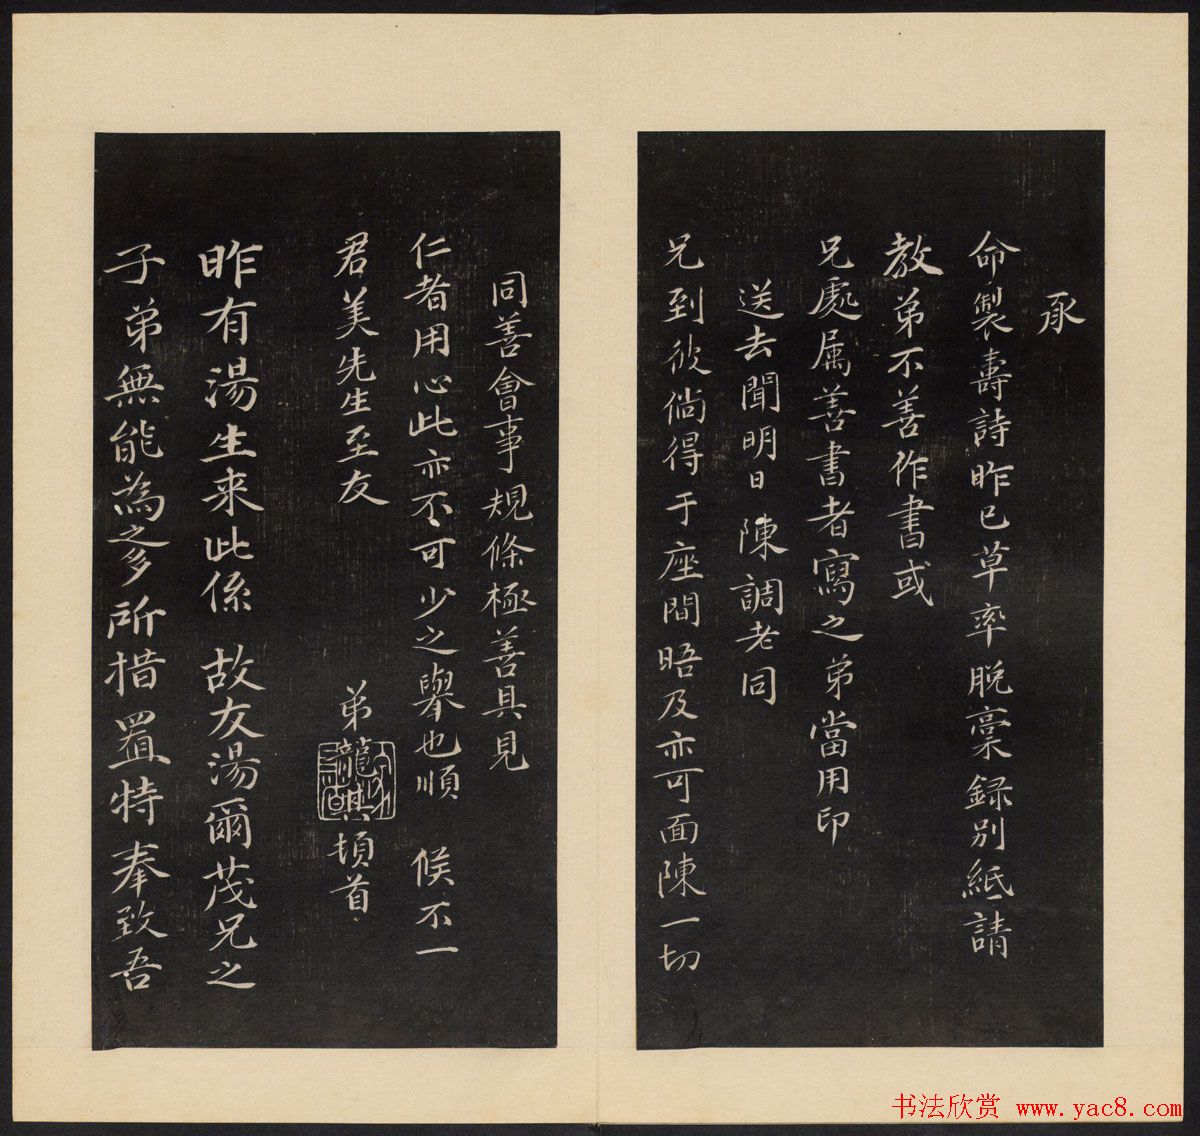 承
命製壽詩昨已草率脫稾録別紙請
教弟不善作書或
兄處属善書者寫之弟當用印
送去聞明日陳調老同
兄到彼倘得于座間晤及亦可面陳一切
同善會事規條極善具見
仁者用心此亦不可少之舉也順 候不一
君美先生至友
弟龍其頓首
昨有湯生来此係 故友湯爾茂兄之
子弟無能為之多所措置特奉致吾
书法欣赏 www.yac8.com